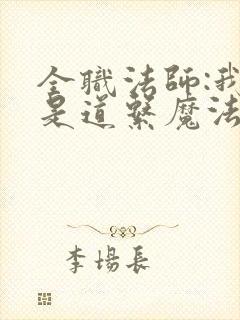 全職法師:我
是道繫魔法
李場長